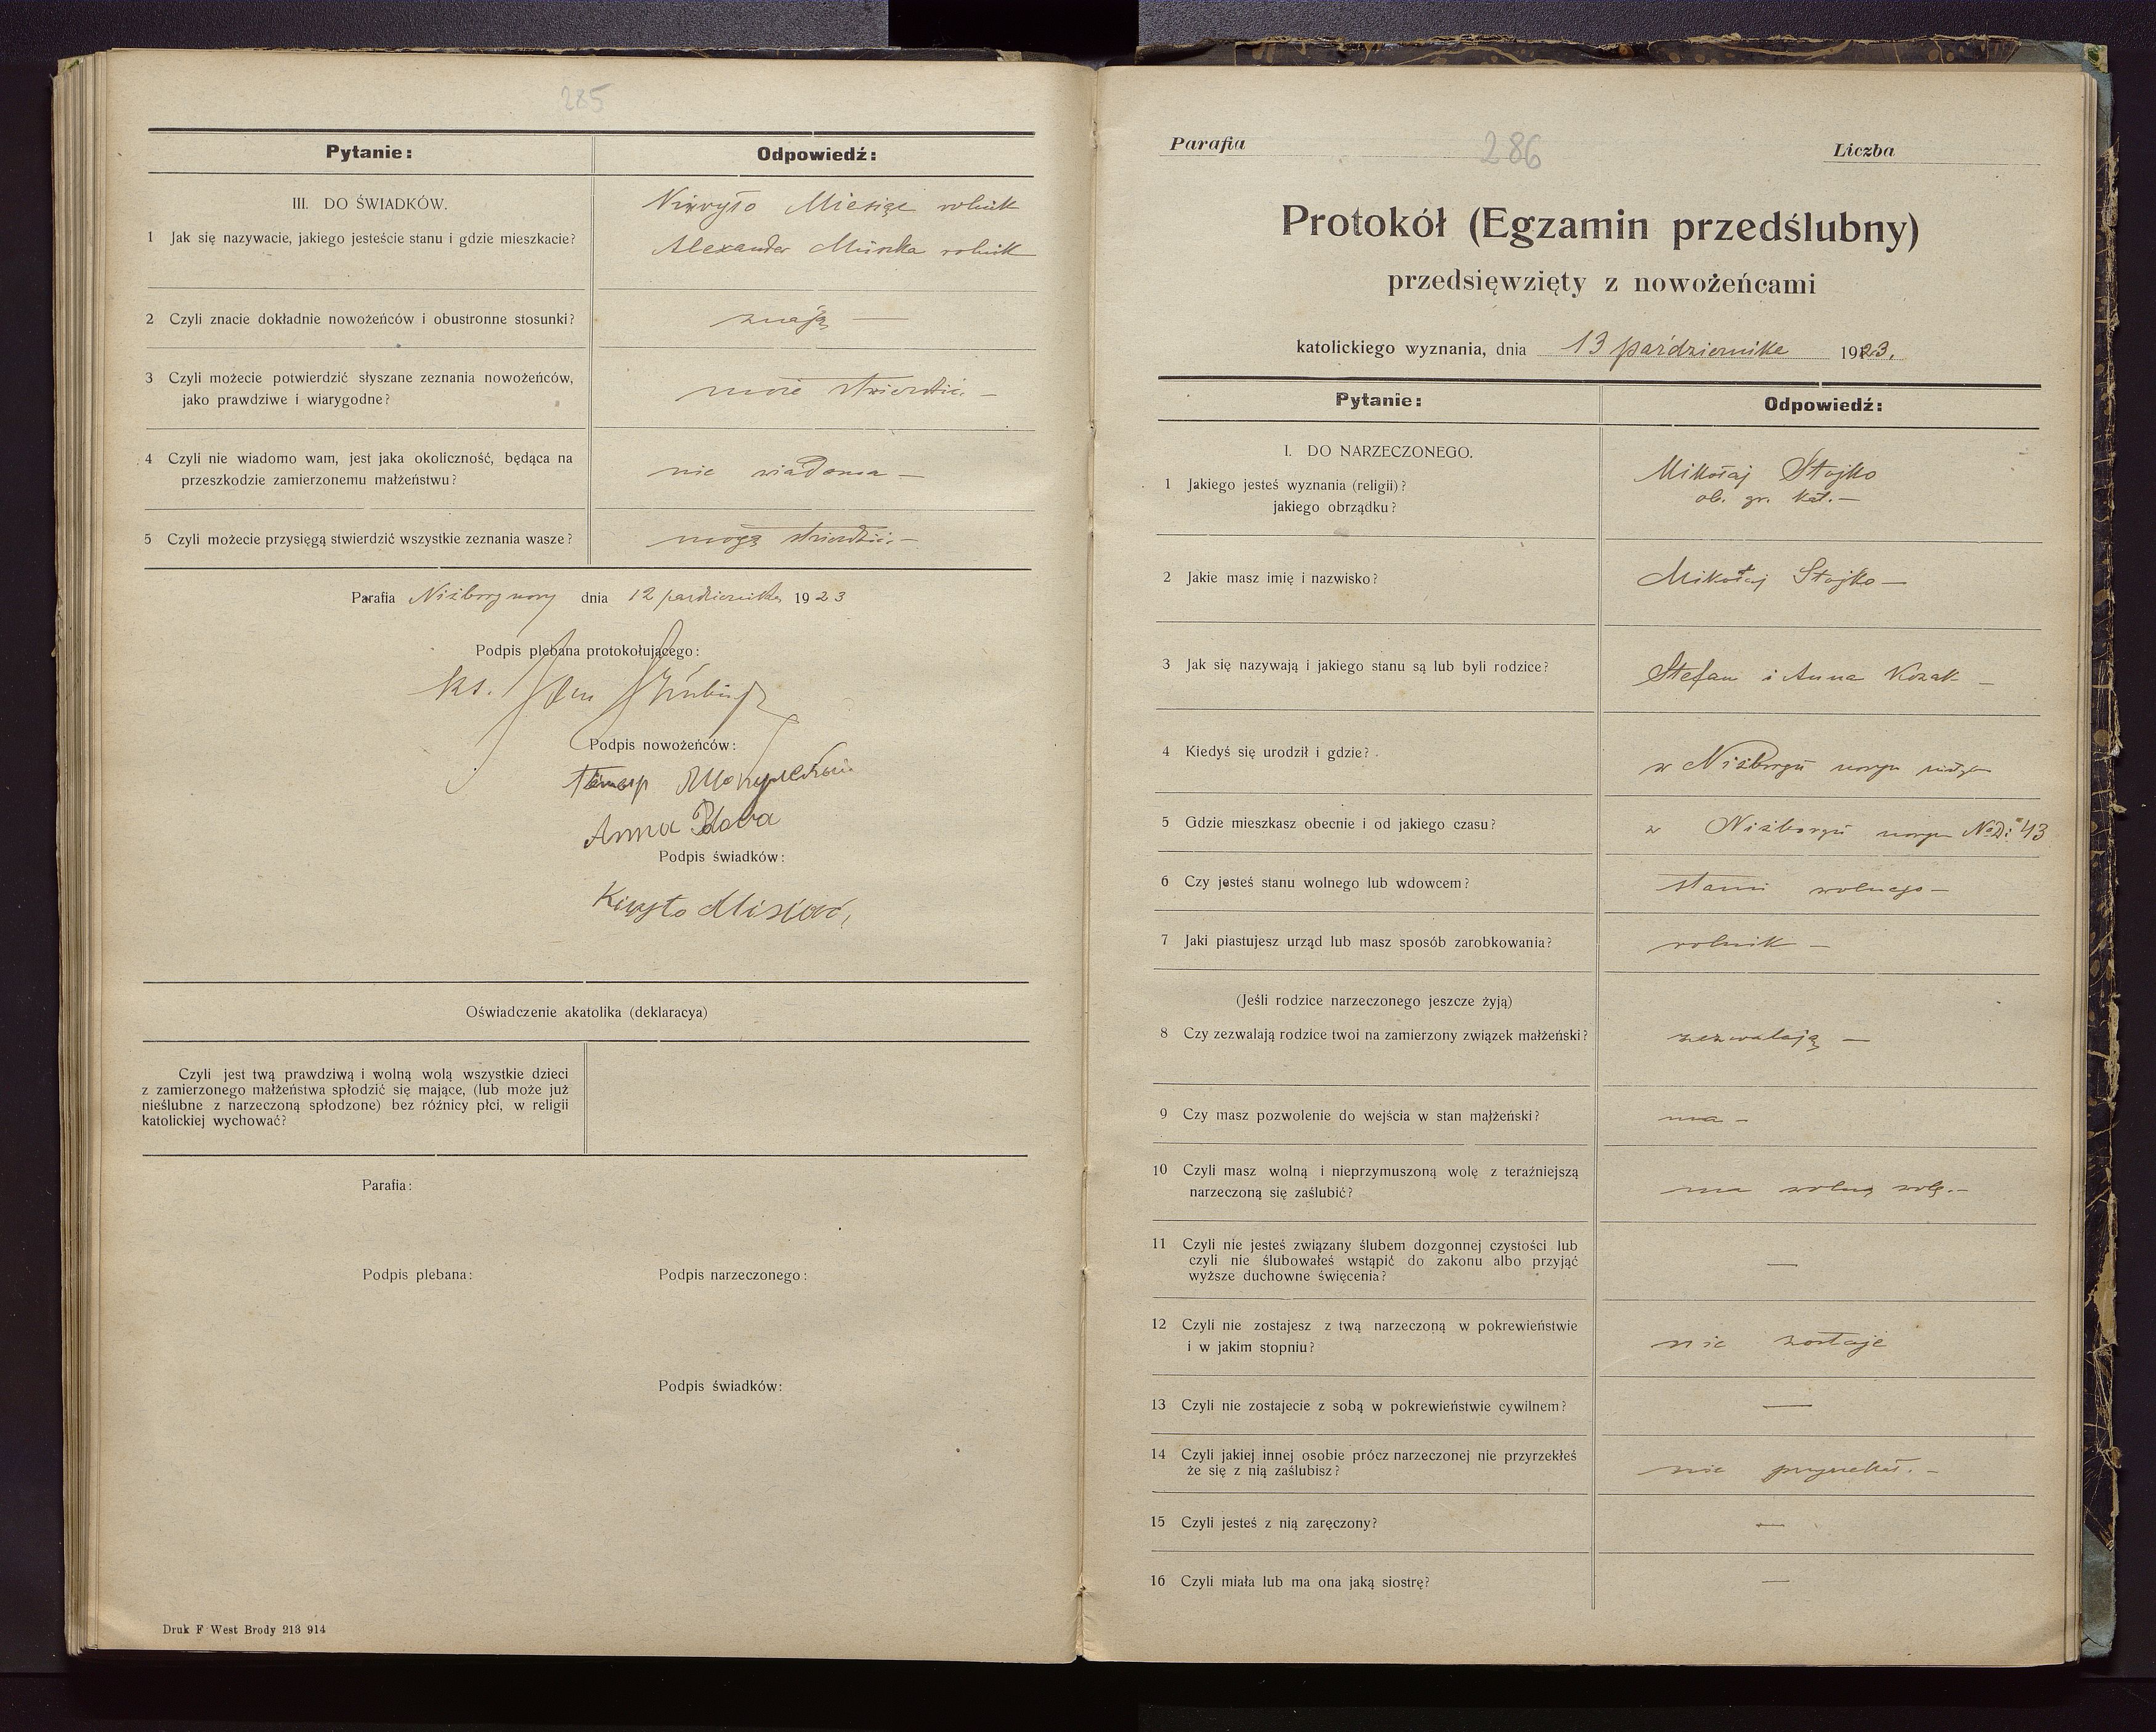 285
Pytanie:
Odpowiedź:
III. DO ŚWIADKÓW.
rolnik
1 Jak się nazywacie, jakiego jesteście stanu i gdzie mieszkacie?
Alexander rolnik
2 Czyli znacie dokładnie nowożeńców i obustronne stosunki?
znają —
3 Czyli możecie potwierdzić słyszane zeznania nowożeńców,
jako prawdziwe i wiarygodne?
4 Czyli nie wiadomo wam, jest jaka okoliczność, będąca na
przeszkodzie zamierzonemu małżeństwu?
nie wiadoma —
5 Czyli możecie przysięgą stwierdzić wszystkie zeznania wasze?
mogą
Parafia Niżborg nowy dnia 12 października 1923
Podpis plebana protokołującego:
ks. Jan
Podpis nowożeńców:
Anna
Podpis świadków:
Oświadczenie akatolika (deklaracya)
Czyli jest twą prawdziwą i wolną wolą wszystkie dzieci
z zamierzonego małżeństwa spłodzić się mające, (lub może już
nieślubne z narzeczoną spłodzone) bez różnicy płci, w religii
katolickiej wychować?
Parafia:
Podpis plebana:
Podpis narzeczonego:
Podpis świadków:
Druk F West Brody 213 914
Parafia
286
Liczba
Protokół (Egzamin przedślubny)
przedsięwzięty z nowożeńcami
katolickiego wyznania, dnia 13 października 1923.
Pytanie:
Odpowiedź:
I. DO NARZECZONEGO.
1 Jakiego jesteś wyznania (religii)?
jakiego obrządku?
Mikołaj Stojko
ob. gr. kat. —
2 Jakie masz imię i nazwisko?
Mikołaj Stojko —
3 Jak się nazywają i jakiego stanu są lub byli rodzice?
Stefan i Anna Kozak —
4 Kiedyś się urodził i gdzie?
w Niżborgu nowym
5 Gdzie mieszkasz obecnie i od jakiego czasu?
w Niżborgu nowym 43
6 Czy jesteś stanu wolnego lub wdowcem?
stanu wolnego —
7 Jaki piastujesz urząd lub masz sposób zarobkowania?
rolnik —
(Jeśli rodzice narzeczonego jeszcze żyją)
8 Czy zezwalają rodzice twoi na zamierzony związek małżeński?
zezwalają —
9 Czy masz pozwolenie do wejścia w stan małżeński?
ma —
10 Czyli masz wolną i nieprzymuszoną wolę z teraźniejszą
narzeczoną się zaślubić?
ma wolną wolę. —
11 Czyli nie jesteś związany ślubem dozgonnej czystości lub
czyli nie ślubowałeś wstąpić do zakonu albo przyjąć
wyższe duchowne święcenia?
—
12 Czyli nie zostajesz z twą narzeczoną w pokrewieństwie
i w jakim stopniu?
nie zostaje
13 Czyli nie zostajecie z sobą w pokrewieństwie cywilnem?
—
14 Czyli jakiej innej osobie prócz narzeczonej nie przyrzekłeś
że się z nią zaślubisz?
nie przyrzekał. —
15 Czyli jesteś z nią zaręczony?
—
16 Czyli miała lub ma ona jaką siostrę?
—